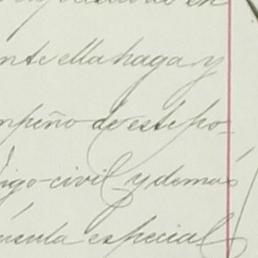 en
nte ella haga y
mpeño de este po-
digo civil y demás
usula especial